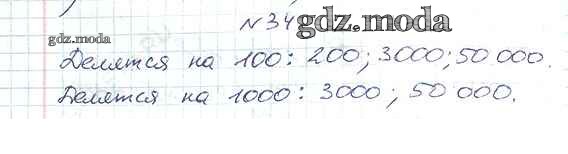 №34
gdz.moda
gdz.moda
Делятся на 100: 200; 3000; 50 000.
Делятся на 1000: 3000; 50 000.